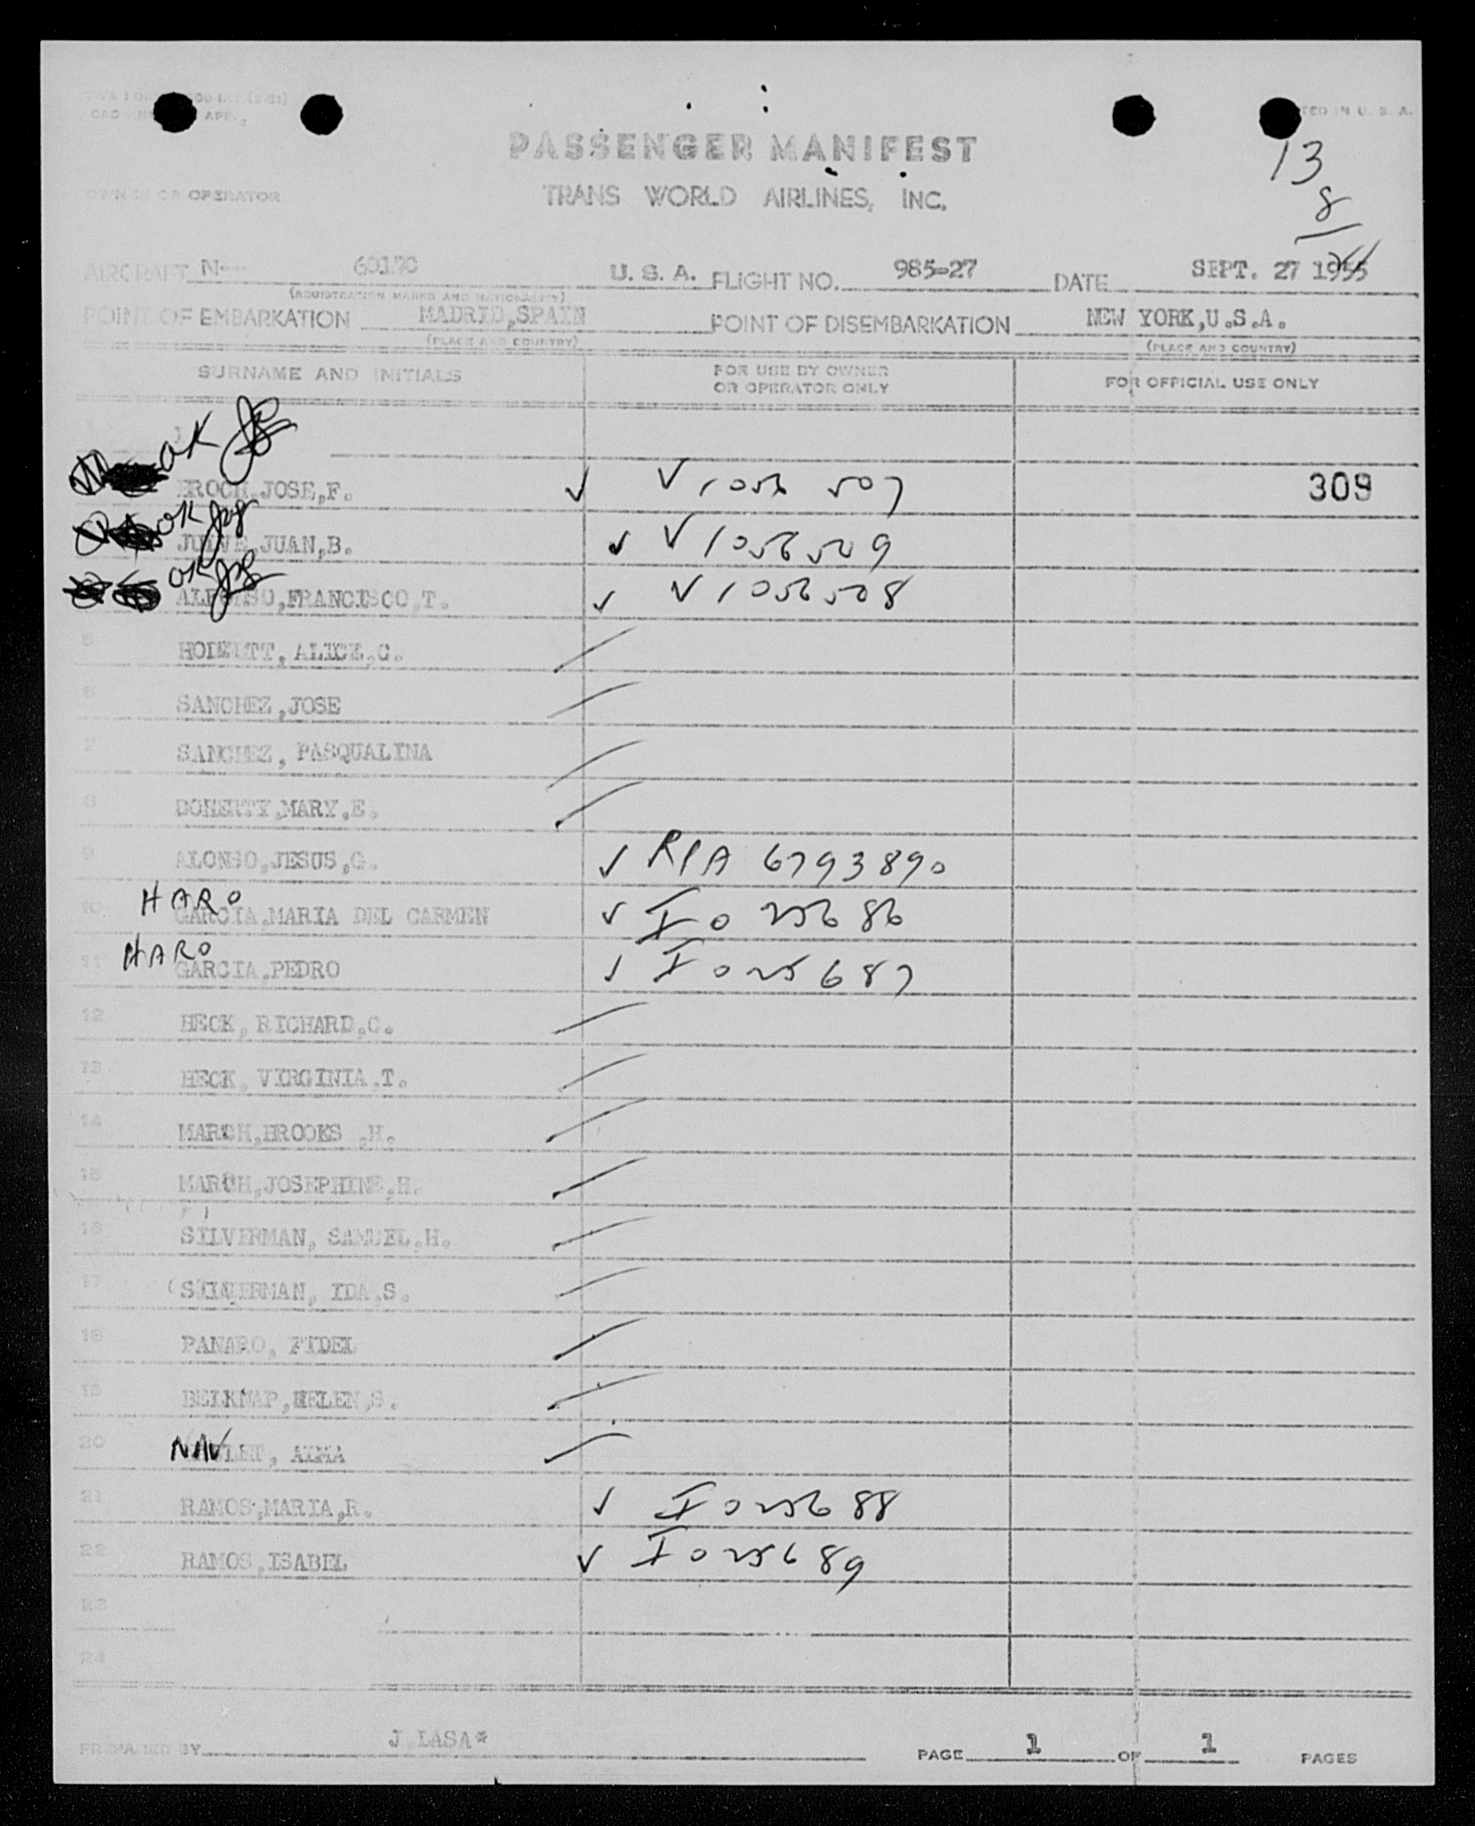 PRINTED IN U. S. A.
PASSENGER MANIFEST
13
OWNER OR OPERATOR
TRANS WORLD AIRLINES, INC.
8
AIRCRAFT N--- 6017C U. S. A. FLIGHT NO. 985-27 DATE SEPT. 27 1955
(REGISTRATION MARKS AND NATIONALITY)
POINT OF EMBARKATION MADRID,SPAIN POINT OF DISEMBARKATION NEW YORK,U.S.A.
(PLACE AND COUNTRY) (PLACE AND COUNTRY)
SURNAME AND INITIALS FOR USE BY OWNER OR OPERATOR ONLY FOR OFFICIAL USE ONLY
OK
JOSE,F. ✓ V1056 507 309
OK
JUAN,B. ✓ V1056509
OK
FRANCISCO,T. ✓ V1056508
5 ALICE,C.
6 SANCHEZ,JOSE
7 SANCHEZ, PASQUALINA
8 DOHERTY,MARY,E.
9 ALONSO,JESUS,G. ✓ RPA 6793890
HARO
10 GARCIA,MARIA DEL CARMEN ✓ I 0 25686
HARO
11 GARCIA,PEDRO ✓ I 025687
12 HECK, RICHARD,C.
13 HECK, VIRGINIA,T.
14 MARCH,BROOKS ,H.
15 MARCH,JOSEPHINE,H.
16 SILVERMAN, SAMUEL,H.
17 SILVERMAN, IDA,S.
18 PANARO, FIDEL
19 BELKNAP,HELEN,S.
20 NAV
21 RAMOS,MARIA,R. ✓ I 025688
22 RAMOS,ISABEL ✓ I 025689
23
24
PREPARED BY J LASA* PAGE 1 OF 1 PAGES